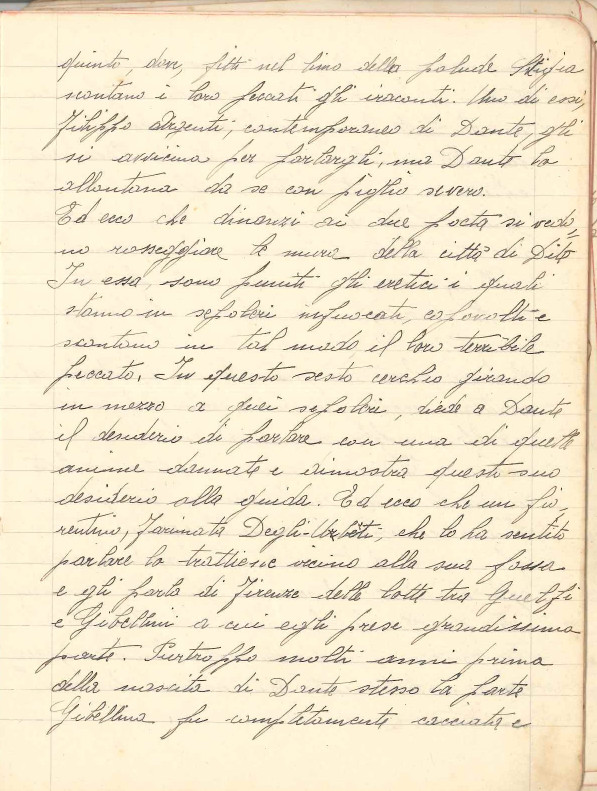 quinto, dove, fitti nel limo della palude Stigia
scontano i loro peccati gli iracondi. Uno di essi,
Filippo Argenti, contemporaneo di Dante, gli
si avvicina per parlargli, ma Dante lo
allontana da se con piglio severo.
Ed ecco che dinanzi ai due poeta si vedo,
no rosseggiare le mura della città di Dite
In essa, sono puniti gli eretici i quali
stanno in sepolcri infuocati, capovolti e
scontano in tal modo il loro terribile
peccato. In questo sesto cerchio girando
in mezzo a quei sepolcri, viene a Dante
il desiderio di parlare con una di quelle
anime dannate e dimostra questo suo
desiderio alla guida. Ed ecco che un fio,
rentino, Farinata Degli-Uberti, che lo ha sentito
parlare lo trattiene vicino alla sua fossa
e gli parla di Firenze delle lotte tra Guelfi
e Gibellini a cui egli prese grandissima
parte. Purtroppo molti anni prima
della nascita di Dante stesso la parte
Gibellina fu completamente cacciata e